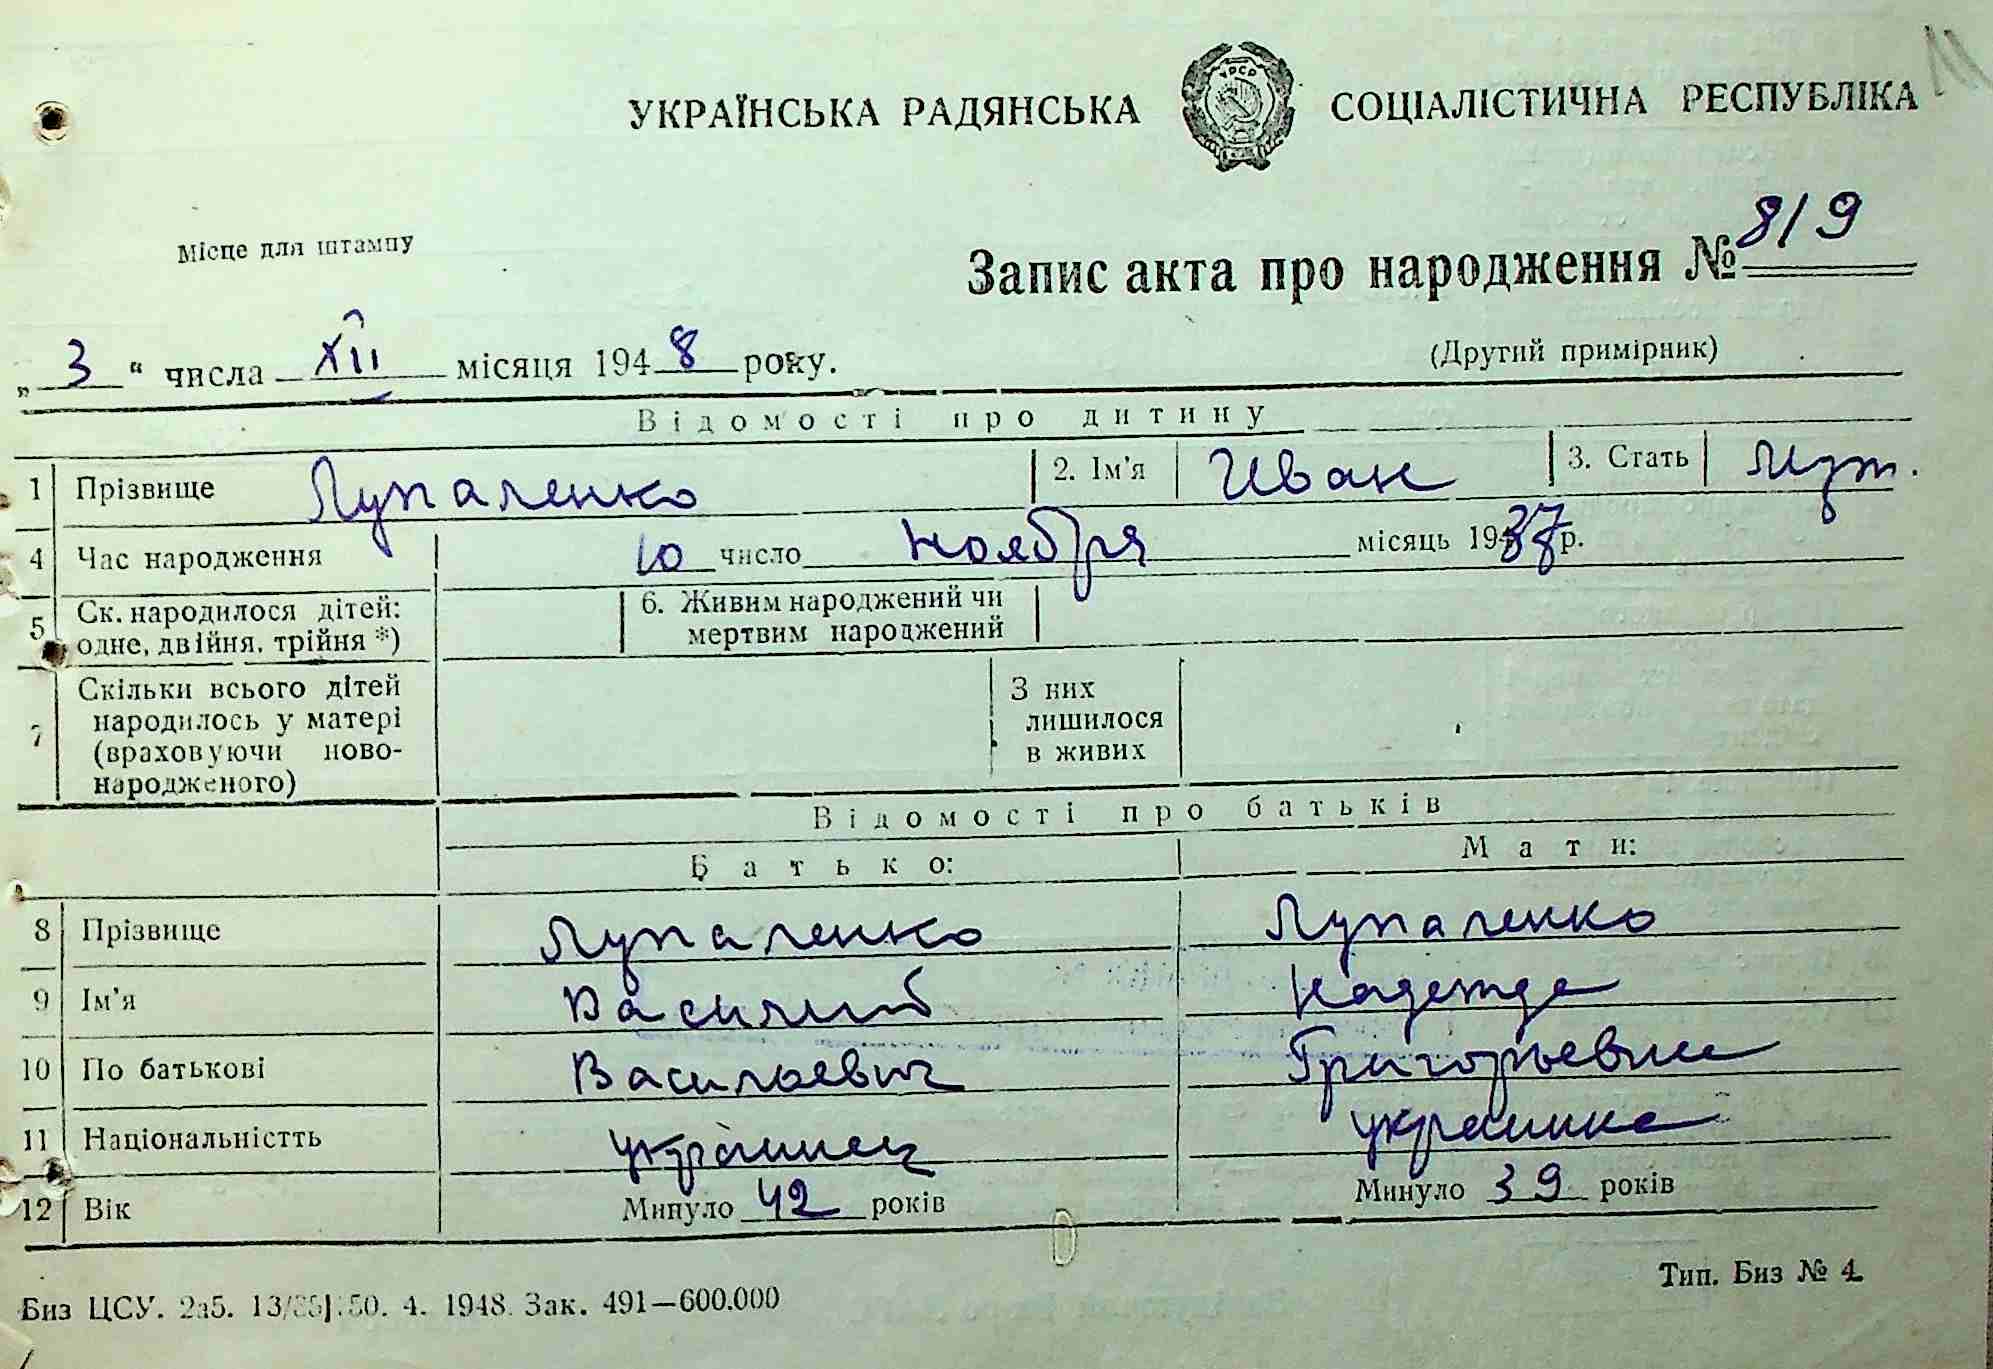 УРСР
УКРАЇНСЬКА РАДЯНСЬКА СОЦІАЛІСТИЧНА РЕСПУБЛІКА
Місце для штампу
Запис акта про народження № 819
„3“ числа XII місяця 1948 року.
(Другий примірник)
Відомості про дитину
1 Прізвище Лупаленко 2. Ім'я Иван 3. Стать муж.
4 Час народження 10 число ноября місяць 1937 р.
5 Ск. народилося дітей: одне, двійня, трійня *) 6. Живим народжений чи мертвим народжений
7 Скільки всього дітей народилось у матері (враховуючи ново-народженого) З них лишилося в живих
Відомості про батьків
Батько: Мати:
8 Прізвище Лупаленко Лупаленко
9 Ім'я Василий Надежда
10 По батькові Васильевич Григорьевна
11 Національністть украинец украинка
12 Вік Минуло 42 років Минуло 39 років
Тип. Биз № 4.
Биз ЦСУ. 2а5. 50. 4. 1948. Зак. 491—600.000